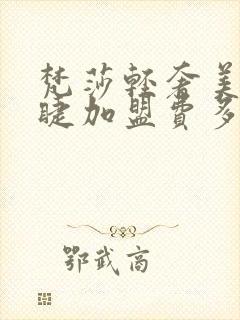 梵莎轻奢美
睫加盟费多
鄂武商